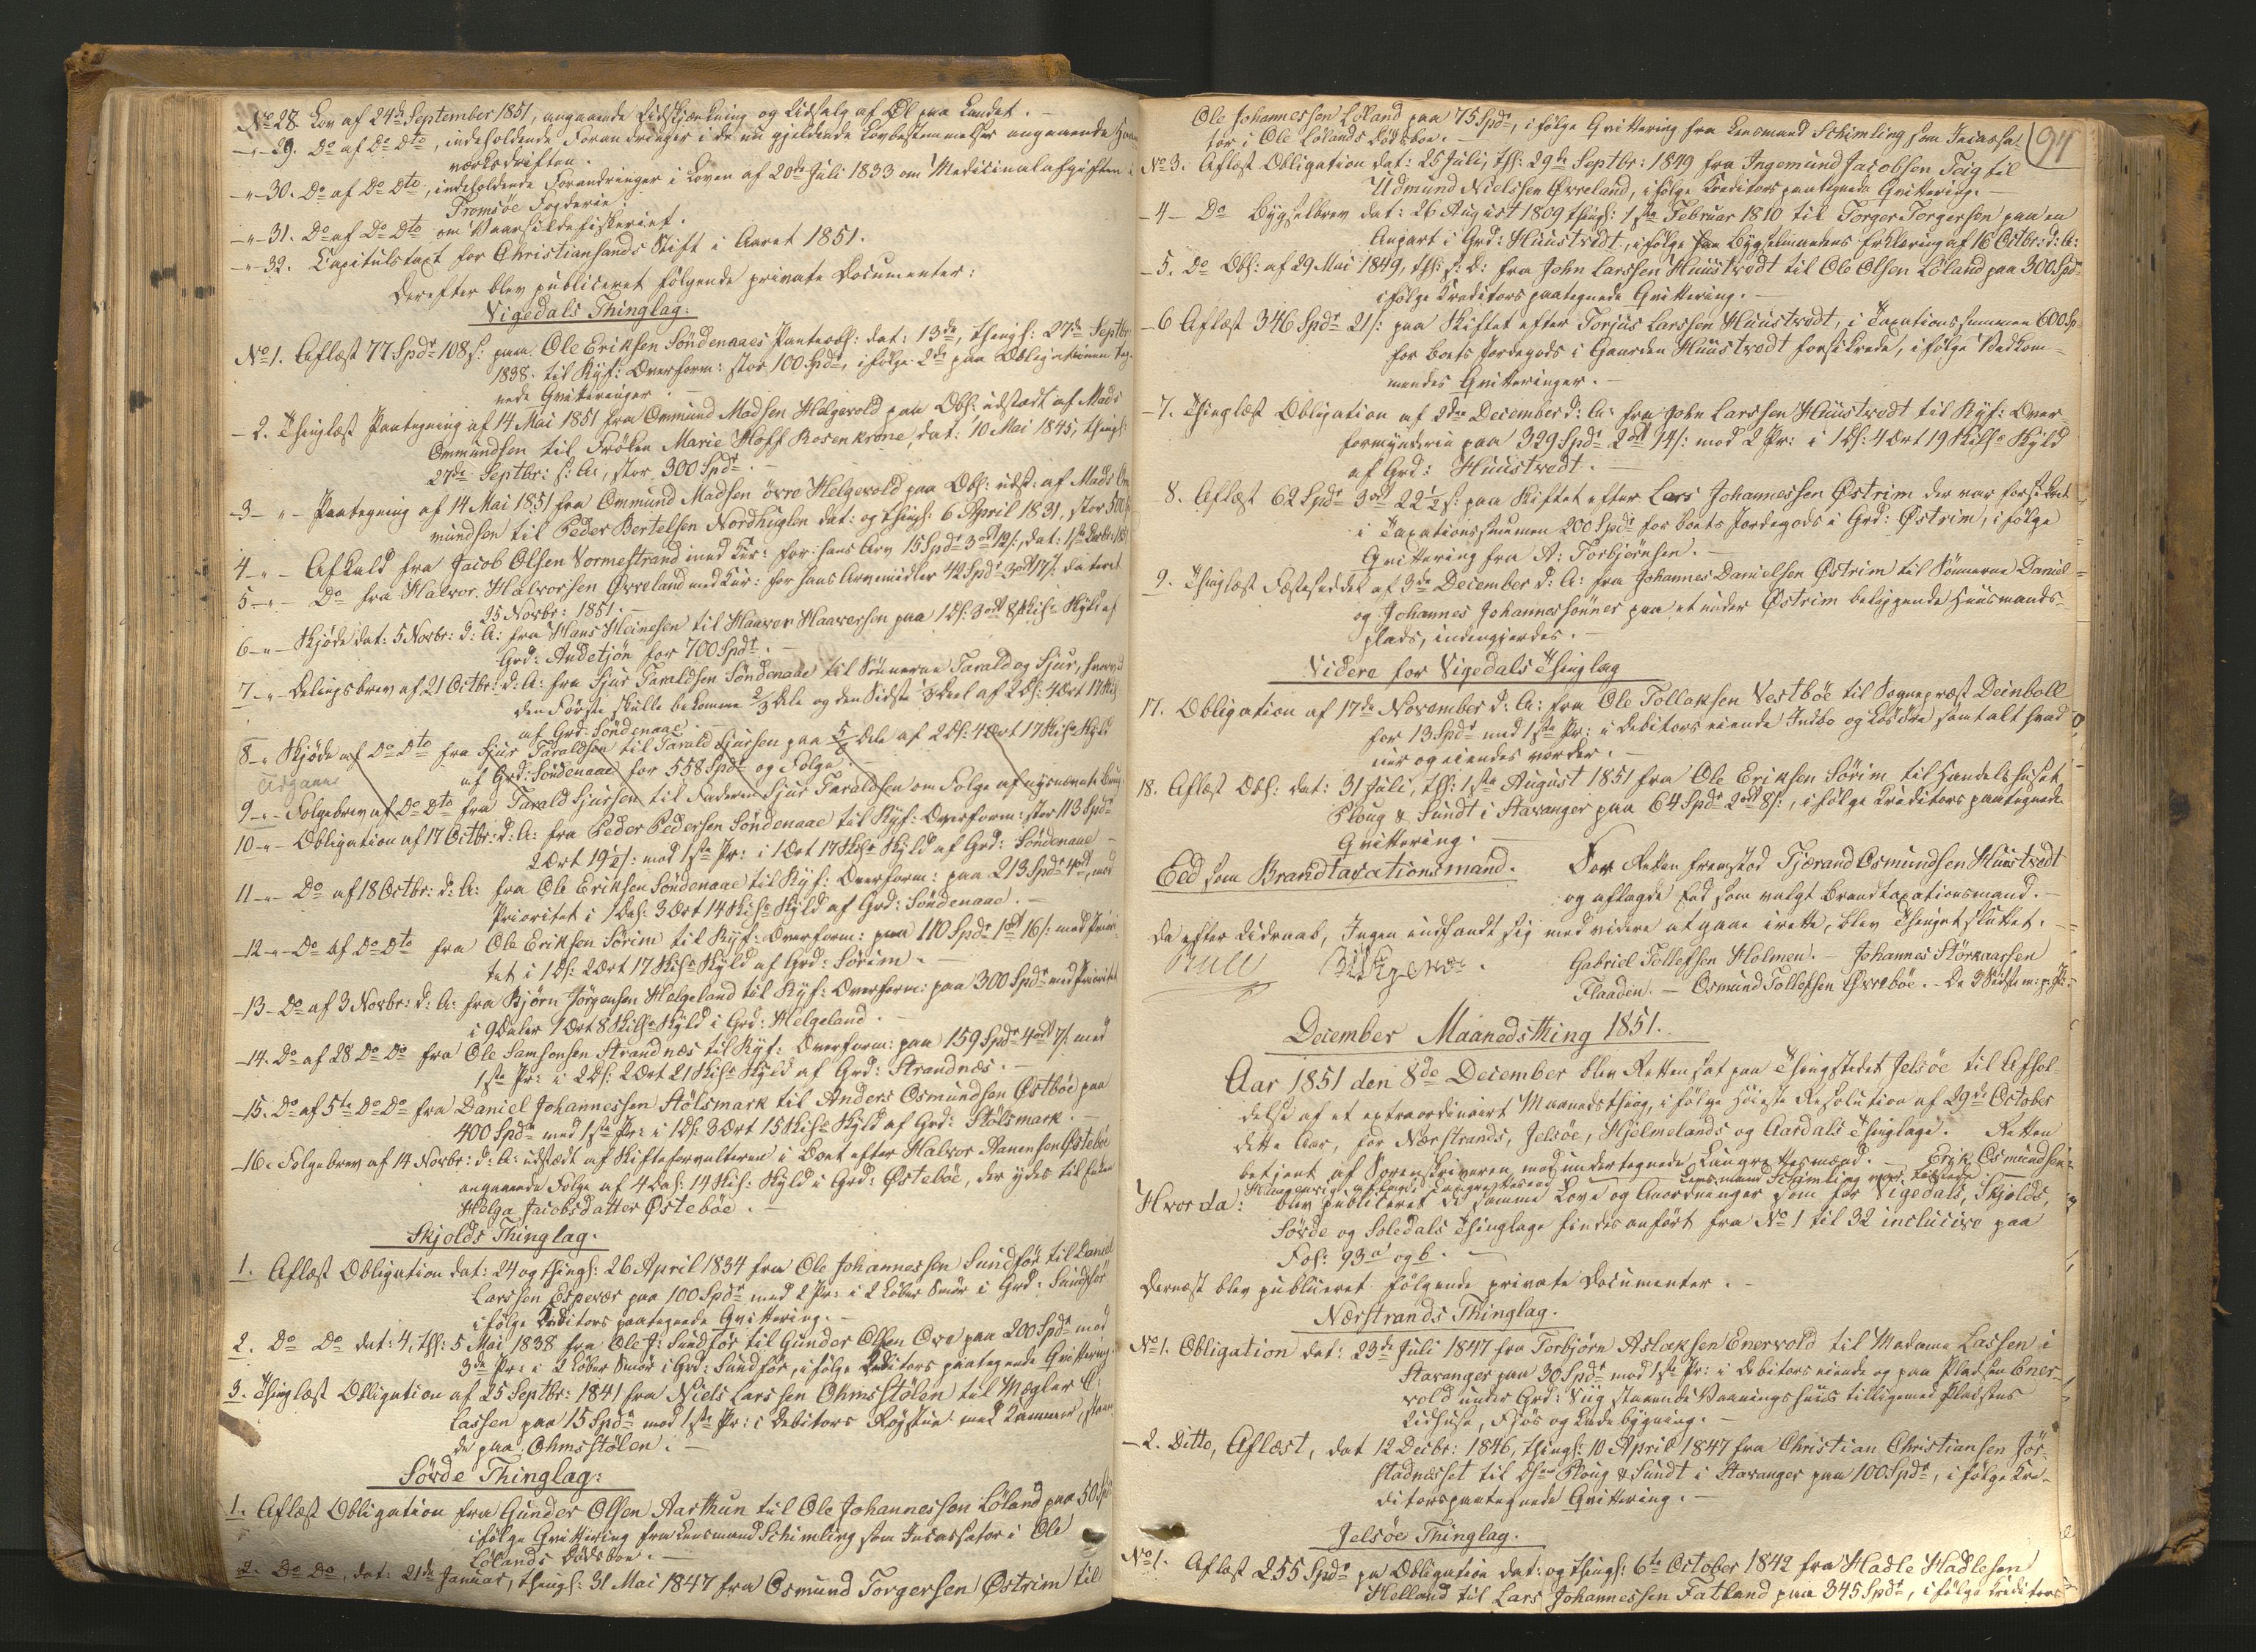 No 28. Lov af 24de September 1851, angaaende Udskjænkning og Udsalg af Øl paa Landet.
-"-29. Do af Do Dto, indeholdende Forandringer i de nu gjeldende Lovbestemmelser angaaende
værksdriften.
-"-30. Do af Do Dto, indeholdende Forandringer i Loven af 20de Juli 1833 om Medicinalafgiften i
Tromsöe Fogderie.
-"-31. Do af Do Dto om Vaarsildefiskeriet.
-"-32. Capitulstaxt for Christiansands Stift i Aaret 1851.
Derefter blev publiceret følgende private Documenter:
Vigedals Thinglag:
No 1. Aflæst 77 Spdr 108 s: paa Ole Eriksen Söndenaaes Panteobl: dat: 13de, thingl: 27de Septbr:
1838. til Ryf: Overform: stor 100 Spdr, ifølge 2de paa Obligationen teg-
nede Qvitteringer
- 2. Thinglæst Paategning af 14 Mai 1851 fra Ommund Madsen Helgevold paa Obl: udstædt af Mads
Ommundsen til Fröken Marie Hoff Rosenkrone, dat: 10 Mai 1845, thingl:
27de Septbr: s: A:, stor 300 Spdr. -
- 3 - " - Paategning af 14 Mai 1851 fra Ommund Madsen övre Helgevold paa Obl: udst: af Mads Om
mundsen til Peder Bertelsen Nordhuglen dat: og thingl: 6 April 1831, stor 500
4 - " - Afkald fra Jacob Olsen Vormestrand med Cur: for hans Arv 15 Spdr 3 ort 12 s:, dat: 1ste
5 - " - Do fra Halvor Halvorsen Øvreland med Cur: for hans Arvemidler 42 Spdr 3 ort 17 s. dateret
25 Novbr: 1851. -
6 - " - Skjöde dat: 5 Novbr: d: A: fra Hans Heinesen til Haaver Haaversen paa 1 Dl: 3 ort 8 Skill: Skyld af
Grd: Andetjön for 700 Spdr. -
7 - " - Delingsbrev af 21 Octbr: d: A: fra Sjur Taraldsen Söndenaae til Sönnerne Tarald og Sjur, hvorved
den Første skulle bekomme 2/3 Dele og den Sidste 1/3 Deel af 2 Dl: 4 Ort 17 Skill
af Grd: Söndenaae. -
8 - " Skjöde af Do Dto fra Sjur Taraldsen til Tarald Sjursen paa 5/6 Dele af 2 Dl: 4 Ort 17 Skill Skyld
af Grd: Söndenaae for 558 Spdr og Folge. -
Udgaaer
9 - " - Folgebrev af Do Dto fra Tarald Sjursen til Faderen Sjur Taraldsen om Folge af nysnævnte
10 - " - Obligation af 17 Octbr: d: A: fra Peder Pedersen Söndenaae til Ryf: Overform: stor 113 Spdr
2 Ort 19 1/2 s: med 1ste Pr: i 1 Ort 17 Skill Skyld af Grd: Söndenaae -
11 - " - Do af 18 Octbr: d: A: fra Ole Eriksen Söndenaae til Ryf: Overform: paa 213 Spdr 4 ort, med
Prioritet i 1 Dal: 3 Ort 14 Skill Skyld af Grd: Söndenaae. -
- 12 - " - Do af Do Dto fra Ole Eriksen Sörim til Ryf: Overform: paa 110 Spdr 1 ort 16 s: med Priori-
tet i 1 Dl: 2 Ort 17 Skill Skyld af Grd: Sörim. -
- 13 - Do af 3 Novbr: d: A: fra Björn Jörgensen Helgeland til Ryf: Overform: paa 300 Spdr med Prioritet
i 9 Daler 1 Ort 8 Skill Skyld i Grd: Helgeland. -
- 14. Do af 28 Do Do fra Ole Samsonsen Strandnæs til Ryf: Overform: paa 159 Spdr 4 ort 7 s. med
1ste Pr: i 2 Dl: 2 Ort 21 Skill Skyld af Grd: Strandnæs. -
- 15. Do af 5te Do Do fra Daniel Johannessen Stölsmark til Anders Osmundsen Østböe paa
400 Spdr med 1ste Pr: i 1 Dl: 3 Ort 15 Skill Skyld af Grd: Stölsmark. -
- 16. Folgebrev af 14 Novbr: d: A: udstædt af Skifteforvalteren i Boet efter Halvor Aanensen Østeböe
angaaende Folge af 4 Dal: 14 Skil: Skyld i Grd: Østeböe, der ydes til Enken
Helga Jacobsdatter Østeböe. -
Skjolds Thinglag.
1. Aflæst Obligation dat: 24 og thingl: 26 April 1834 fra Ole Johannessen Sundför til Daniel
Larssen Espevær paa 100 Spdr med 2 Pr: i 2 Löber Smör i Grd: Sundför
ifølge Creditors paategnede Qvittering. -
2. Do Do dat: 4, thl: 5 Mai 1838 fra Ole J: Sundför til Gunder Olsen Ove paa 200 Spdr med
3de Pr: i 2 Löber Smör i Grd: Sundför, ifølge Creditors paategnede Qvittering
3. Thinglæst Obligation af 25 Septbr: 1841 fra Niels Larssen Ohmsstölen til Mægler C:
Lassen paa 15 Spdr med 1ste Pr: i Debitors Røgstue med Kammer, staaen-
de paa Ohmsstölen. -
Sövde Thinglag:
1. Aflæst Obligation fra Gunder Olsen Aarthun til Ole Johannessen Löland paa 50 Spdr
ifølge Qvittering fra Lensmand Schimling som Incassator i Ole
Lölands Dödsboe. -
2. Do Do, dat: 21de Januar, thingl: 31 Mai 1847 fra Osmund Torgersen Østrim til
Ole Johannessen Löland paa 75 Spdr, ifølge Qvittering fra Lensmand Schimling som Incassa-
tor i Ole Lölands Dödsboe. -
94
No 3. Aflæst Obligation dat: 25 Juli, thl: 29de Septbr: 1849 fra Ingemund Jacobsen Teig til
Udmund Nielssen Øvreland, ifølge Creditors paategnede Qvittering. -
- 4 - Do Bygselbrev dat: 26 August 1809 thingl: 1ste Februar 1810 til Torger Torgersen paa en
Anpart i Grd: Huustvedt, ifølge Bygselmandens Erklæring af 16 Octbr: d: A:
- 5. Do Obl: af 29 Mai 1849, thl: s: D: fra John Larssen Huustvedt til Ole Olsen Löland paa 300 Spdr
ifølge Creditors paategnede Qvittering. -
- 6 Aflæst 346 Spdr 21 s: paa Skiftet efter Torjus Larssen Huustvedt, i Taxationssummen 600 Sp
for Boets Jordegods i Gaarden Huustvedt forsikrede, ifølge Vedkom-
mendes Qvitteringer. -
- 7. Thinglæst Obligation af 2den December d: A: fra John Larssen Huustvedt til Ryf: Over-
formynderie paa 329 Spdr 2 ort 14 s: mod 2 Pr: i 1 Dl: 4 Ort 19 Skill Skyld
af Grd: Huustvedt. -
8. Aflæst 62 Spdr 3 ort 22 1/2 s: paa Skiftet efter Lars Johannessen Østrim der var forsikret
i Taxationssummen 200 Spdr for Boets Jordegods i Grd: Østrim, ifølge
Qvittering fra A: Torbjörnsen. -
9. Thinglæst Fæsteseddel af 3de December d: A: fra Johannes Danielsen Østrim til Sönnerne Daniel
og Johannes Johannessönner paa et under Østrim beliggende Huusmands-
plads, indengjerdes. -
Videre for Vigedals Thinglag
17. Obligation af 17de November d: A: fra Ole Tollaksen Vestböe til Sognepræst Deinboll
for 13 Spdr med 1ste Pr: i Debitors eiende Indbo og Lösöre samt alt hvad
eier og eiendes vorder. -
18. Aflæst Obl: dat: 31 Juli, thl: 1ste August 1851 fra Ole Eriksen Sörim til Handelshuset
Ploug & Sundt i Stavanger paa 64 Spdr 2 ort 8 s:, ifølge Creditors paategnede
Qvittering. -
Eed som Brandtaxationsmand. For Retten fremstod Tjærand Osmundsen Huustvedt
og aflagde Eed som valgt Brandtaxationsmand. -
Da efter Udraab, Ingen indfandt sig med videre at gaae irette, blev Thinget sluttet.
Gabriel Tollefsen Holmen. - Johannes Störkaarsen
Flaaden. - Osmund Tollefsen Øvreböe. - De 3 Sidste m: p: P:
December Maanedsthing 1851.
Aar 1851 den 8de December blev Retten sat paa Thingstedet Jelsöe til Afhol-
delse af et extraordinairt Maanedsthing, ifølge höieste Resolution af 29de October
dette Aar, for Nærstrands, Jelsöe, Hjelmelands og Aardals Thinglage. Retten
betjent af Sorenskriveren med undertegnede Laugrettesmænd. - Erik Osmundsen
Lensmand Schimling var tilstede
Hvor da: blev publiceret de samme Love og Anordninger som for Vigedals, Skjolds,
Sövde og Soledals Thinglage findes anført fra No 1 til 32 inclusive paa
Fol: 93 a og b. -
Dernæst blev publiceret følgende private Documenter. -
Nærstrands Thinglag.
No 1. Obligation dat: 23de Juli 1847 fra Torbjörn Aslaksen Enervold til Madame Lassen i
Stavanger paa 30 Spdr mod 1ste Pr: i Debitors eiende og paa Pladsen Ener-
vold under Grd: Viig staaende Vaaningshuus tilligemed Pladsens
Udhuse, Fjös og Ladebygning. -
- 2. Ditto, Aflæst, dat 12 Decbr: 1846, thingl: 10 April 1847 fra Christian Christiansen Jör-
stadnæsset til Dhrr Ploug & Sundt i Stavanger paa 100 Spdr, ifølge Cre-
ditors paategnede Qvittering. -
Jelsöe Thinglag.
No 1. Aflæst 255 Spdr paa Obligation dat: og thingl: 6te October 1842 fra Hadle Hadlesen
Helland til Lars Johannessen Fatland paa 345 Spdr, ifølge Creditors